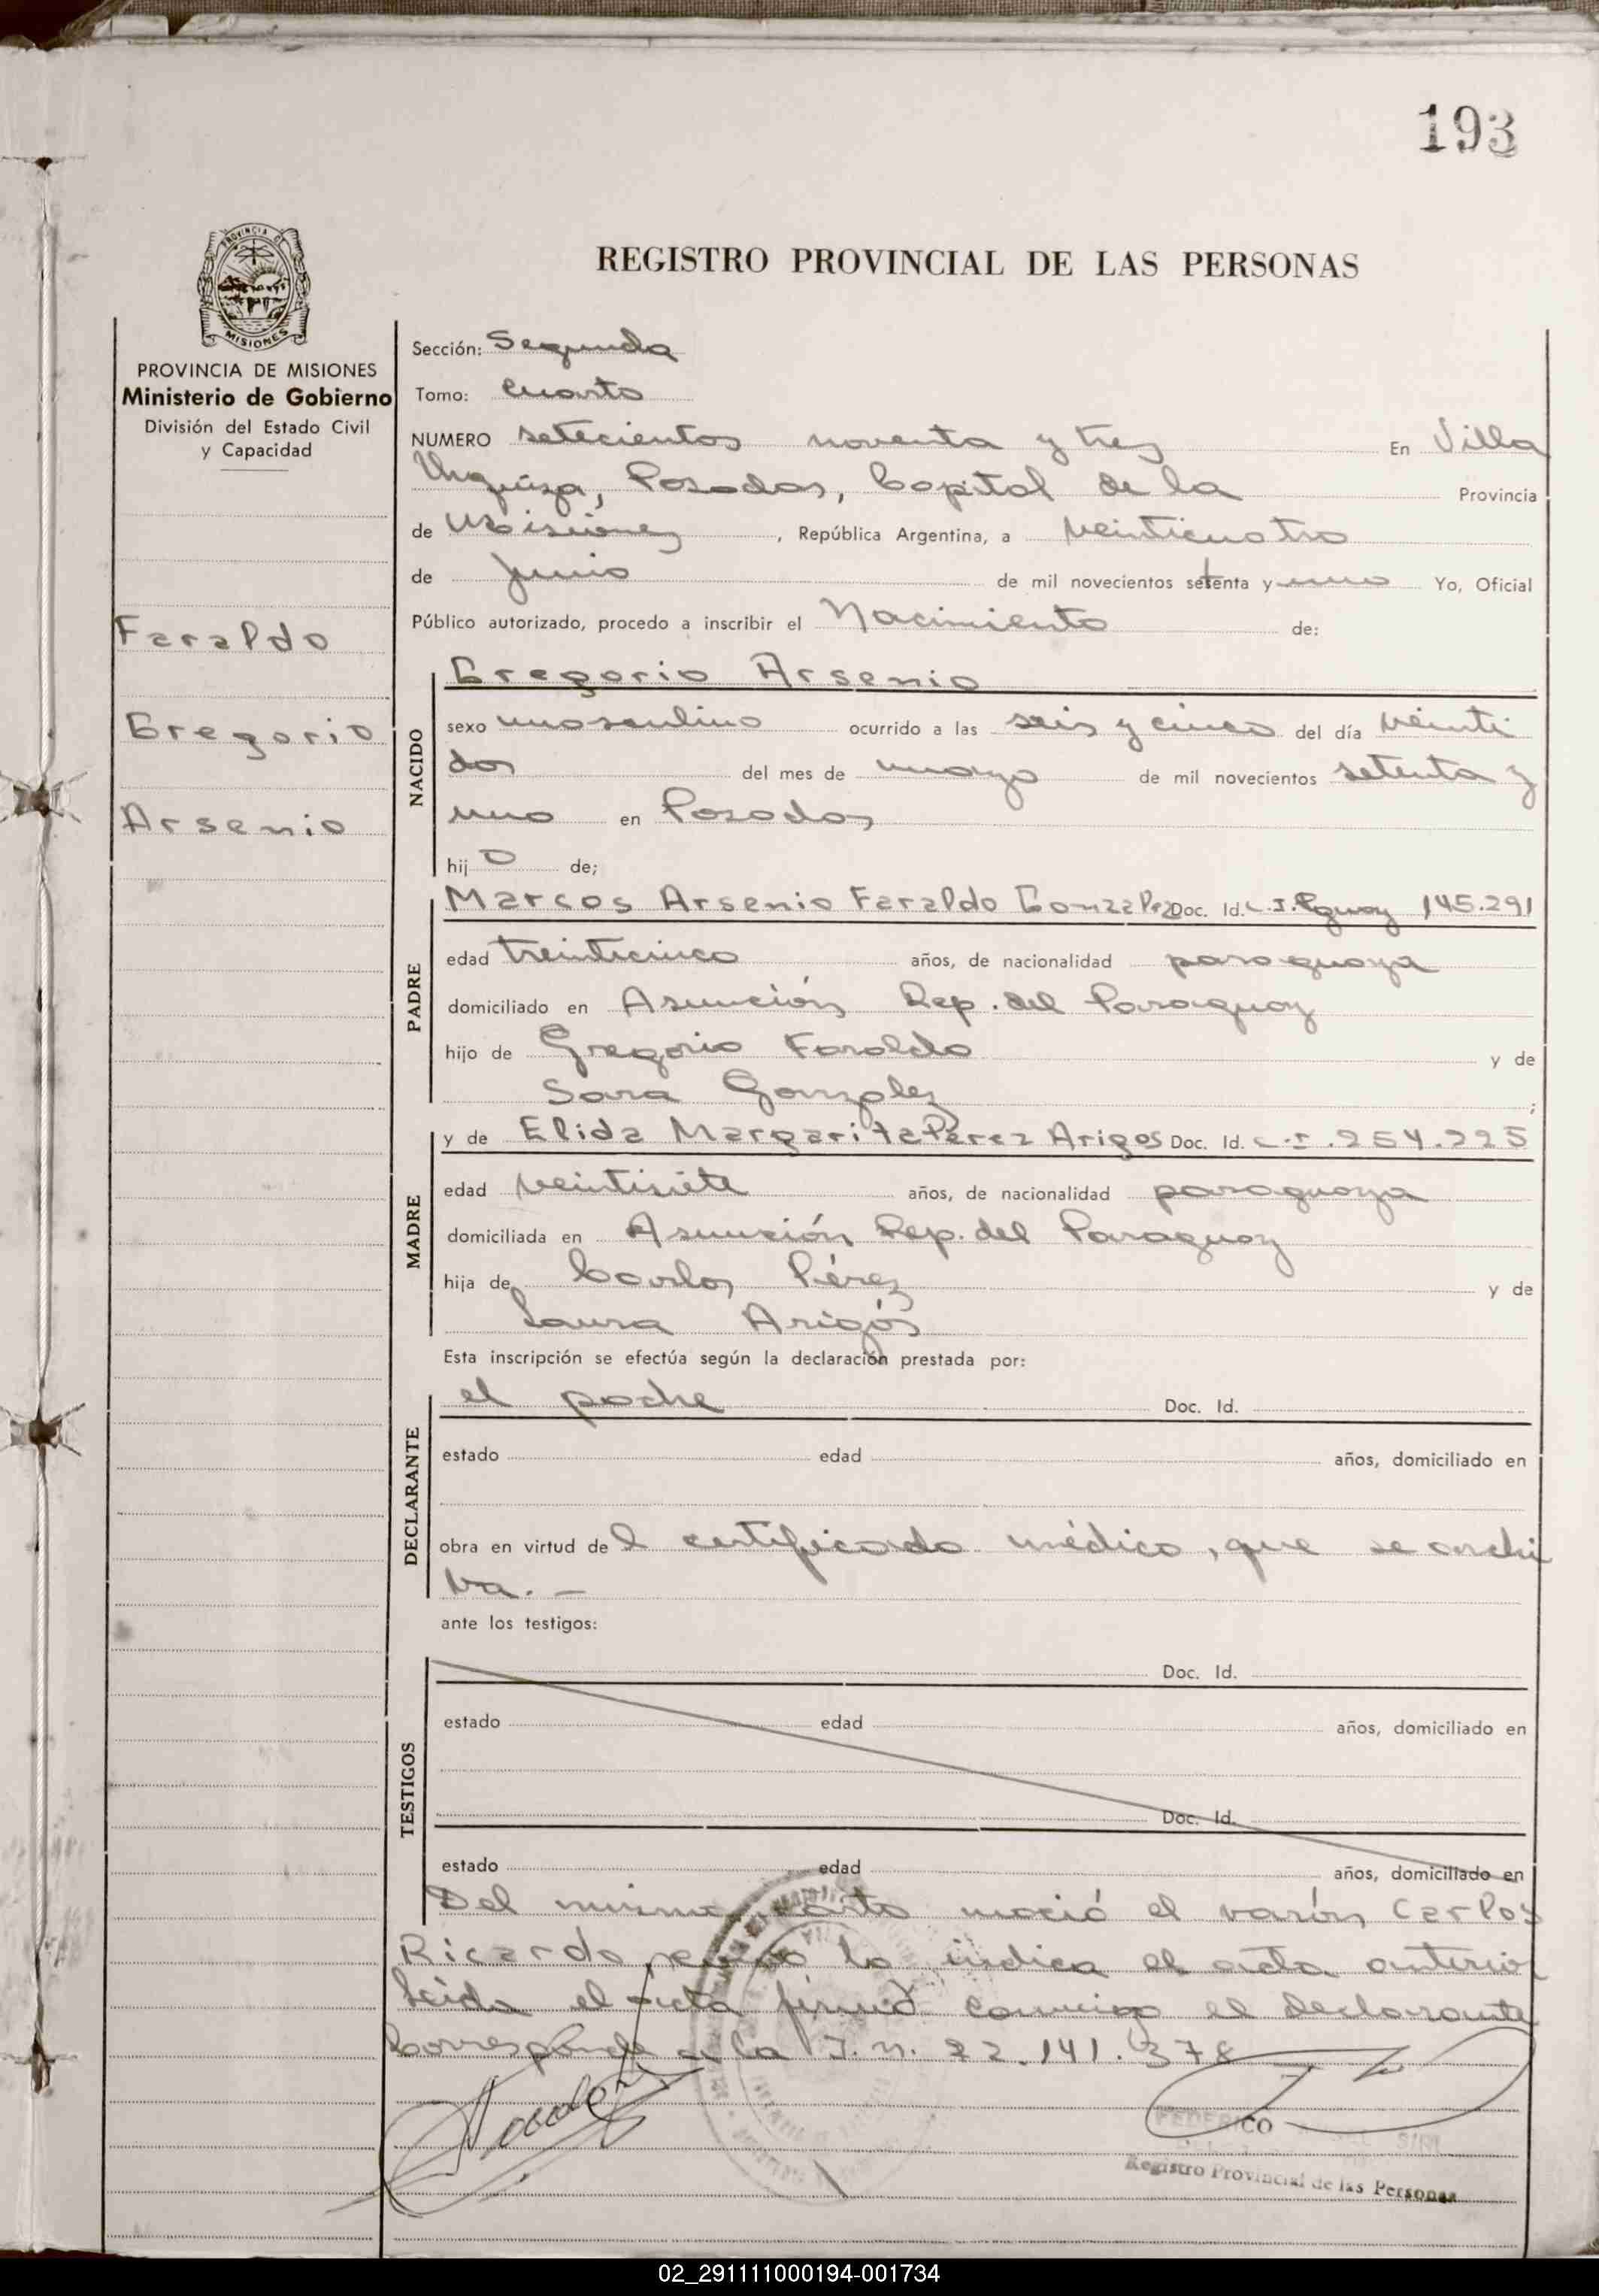 193
REGISTRO PROVINCIAL DE LAS PERSONAS
PROVINCIA DE
MISIONES
PROVINCIA DE MISIONES
Ministerio de Gobierno
División del Estado Civil
y Capacidad
Faraldo
Gregorio
Arsenio
Sección: Segunda
Tomo: Cuarto
NUMERO setecientos noventa y tres En Villa
Urquiza, Posadas, Capital de la Provincia
de Misiones, República Argentina, a veinticuatro
de junio de mil novecientos setenta y uno Yo, Oficial
Público autorizado, procedo a inscribir el Nacimiento de:
Gregorio Arsenio
NACIDO
sexo masculino ocurrido a las seis y cinco del día veinti
dos del mes de mayo de mil novecientos setenta y
uno en Posadas
hijo de;
PADRE
Marcos Arsenio Faraldo Gonzalez Doc. Id. C.I. Pguay 145.291
edad treinticinco años, de nacionalidad paraguaya
domiciliado en Asunción Rep. del Paraguay
hijo de Gregorio Faraldo y de
Sara Gonzalez ;
MADRE
y de Elida Margarita Pérez Arigos Doc. Id. C.I. 254.225
edad veintisiete años, de nacionalidad paraguaya
domiciliada en Asunción Rep. del Paraguay
hija de Carlos Pérez y de
Laura Arigós
Esta inscripción se efectúa según la declaración prestada por:
DECLARANTE
el padre Doc. Id.
estado edad años, domiciliado en
obra en virtud del certificado médico, que se archi
va. –
ante los testigos:
TESTIGOS
Doc. Id.
estado edad años, domiciliado en
Doc. Id.
estado edad años, domiciliado en
Del mismo parto nació el varón Carlos
Ricardo, como lo indica el acta anterior
Leída el acta firmó conmigo el declarante
Corresponde a la I.n. 22.141.378
FEDERICO
Registro Provincial de las Personas
02_291111000194-001734